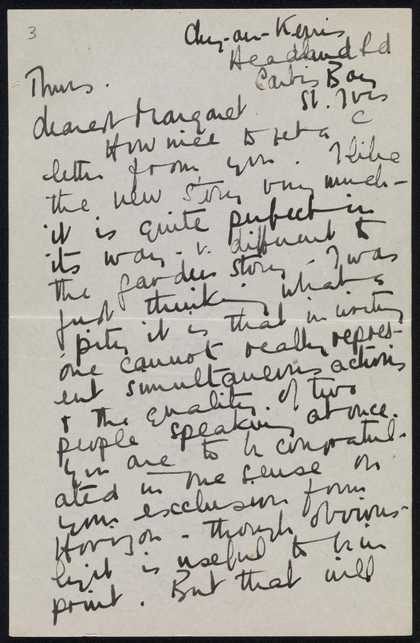 3
Chy-an-Kerris
Headland Rd
Carbis Bay
St. Ives
Thurs.
C
dearest Margaret
How nice to get a
letter from you. I like
the new story very much -
it is quite perfect in
its way - v. different to
the garden story. I was
just thinking what a
pity it is that in writing
one cannot really repres-
ent simultaneous actions
& the quality of two
people speaking at once.
You are to be congratul-
ated in one sense on
your exclusion from
Horizon - though obvious-
ly it is useful to be in
print. But that will